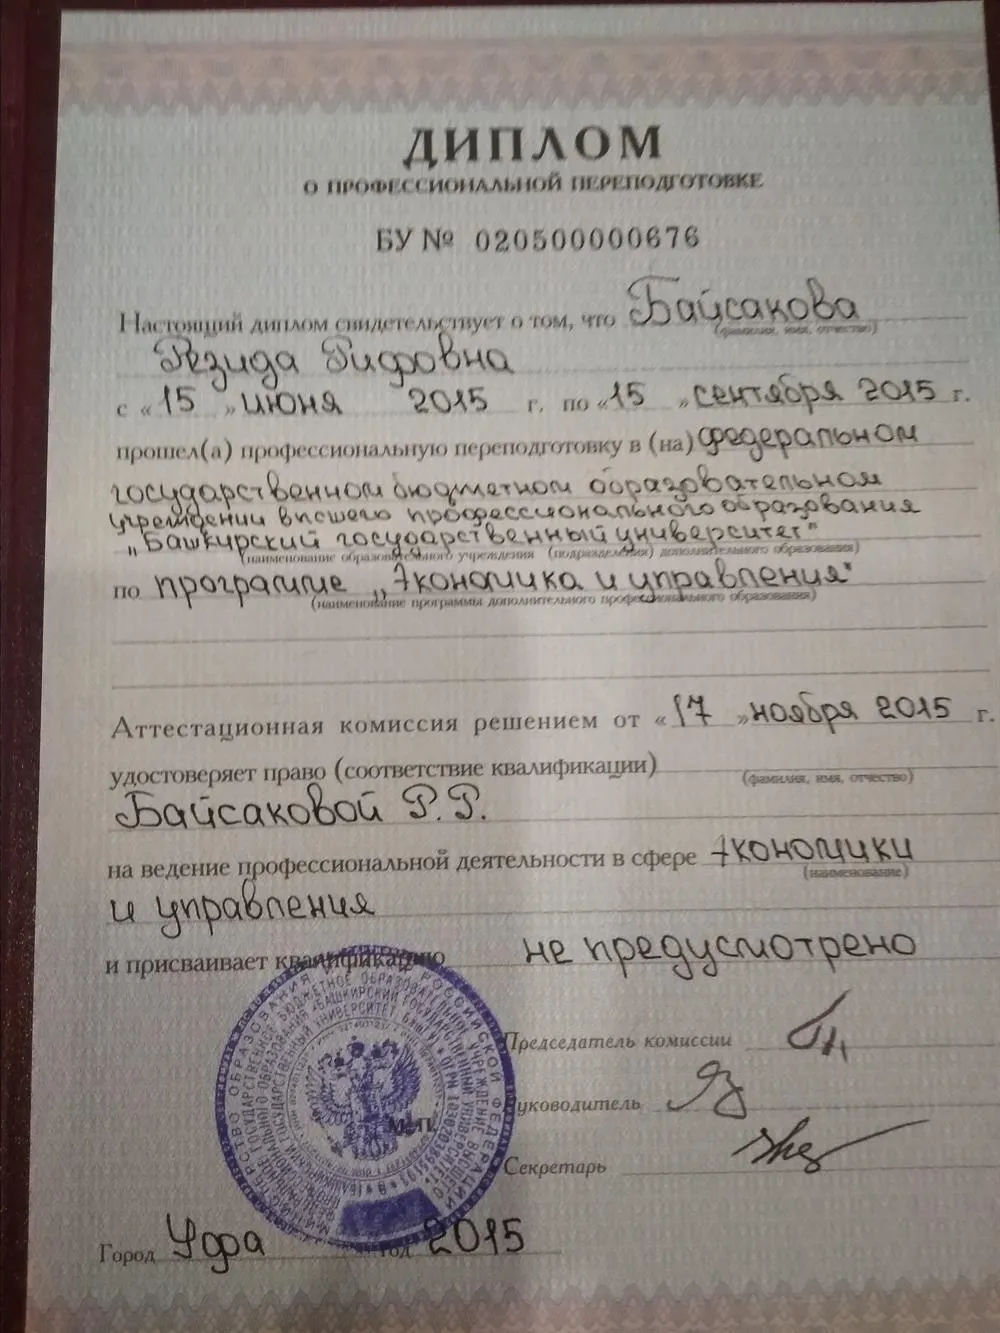 ДИПЛОМ
О ПРОФЕССИОНАЛЬНОЙ ПЕРЕПОДГОТОВКЕ
БУ № 020500000676
Настоящий диплом свидетельствует о том, что Байсакова
(фамилия, имя, отчество)
Резида Рифовна
с «15 » июня 2015 г. по «15 » сентября 2015 г.
прошел(а) профессиональную переподготовку в (на) федеральном
государственном бюджетном образовательном
учреждении высшего профессионального образования
„Башкирский государственный университет"
(наименование образовательного учреждения (подразделения) дополнительного образования)
по программе „Экономика и управления"
(наименование программы дополнительного профессионального образования)
Аттестационная комиссия решением от «17 » ноября 2015 г.
удостоверяет право (соответствие квалификации)
(фамилия, имя, отчество)
Байсаковой Р.Р.
на ведение профессиональной деятельности в сфере Экономики
(наименование)
и управления
и присваивает квалификацию не предусмотрено
Председатель комиссии
М.П.
Руководитель
Секретарь
Город Уфа год 2015